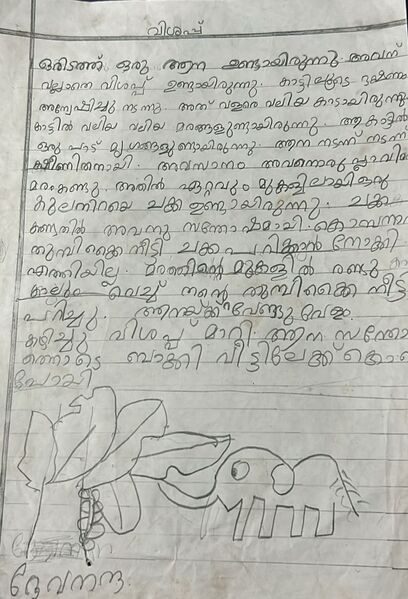 വിശപ്പ്
ഒരിടത്ത് ഒരു ആന ഉണ്ടായിരുന്നു അവന്
വല്ലാതെ വിശപ്പ് ഉണ്ടായിരുന്നു. കാട്ടിലൂടെ ഭക്ഷണം
അന്വേഷിച്ചു നടന്നു. അത് വളരെ വലിയ കാടായിരുന്നു.
കാട്ടിൽ വലിയ വലിയ മരങ്ങളുണ്ടായിരുന്നു ആ കാട്ടിൽ
ഒരു പാട് മൃഗങ്ങളുണ്ടായിരുന്നു. ആന നടന്ന് നടന്ന്
ക്ഷീണിതനായി. അവസാനം അവനൊരു പ്ലാവിൻ
മരം കണ്ടു. അതിൻ ഏറ്റവും മുകളിലായി ഒരു
കുലനിറയെ ചക്ക ഉണ്ടായിരുന്നു. ചക്ക
കണ്ടതിൽ അവനു സന്തോഷമായി. കൊമ്പന്
തുമ്പിക്കൈ നീട്ടി ചക്ക പറിക്കാൻ നോക്കി
എത്തിയില്ല. മരത്തിന്റെ മുകളിൽ രണ്ടു
കാലും വെച്ച് തന്റെ തുമ്പിക്കൈ നീട്ടി
പറിച്ചു. ആനയ്ക്ക് വേണ്ടുവോളം
കഴിച്ചു വിശപ്പ് മാറി ആന സന്തോ
ത്തോടെ ബാക്കി വീട്ടിലേക്ക് കൊ
പോയി
ദേവനന്ദ.